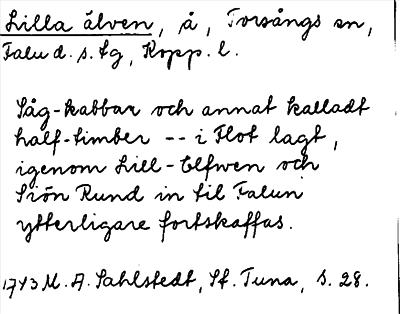 Lilla älven, å, Torsångs sn,
Falu d. s. lg, Kopp. l.
Såg-kabbar och annat kalladt
half-timber -- i Flot lagt,
igenom Lill-Elfwen och
Siön Rund in til Falun
ytterligare fortskaffas.
1743 M. A. Sahlstedt, St. Tuna, s. 28.